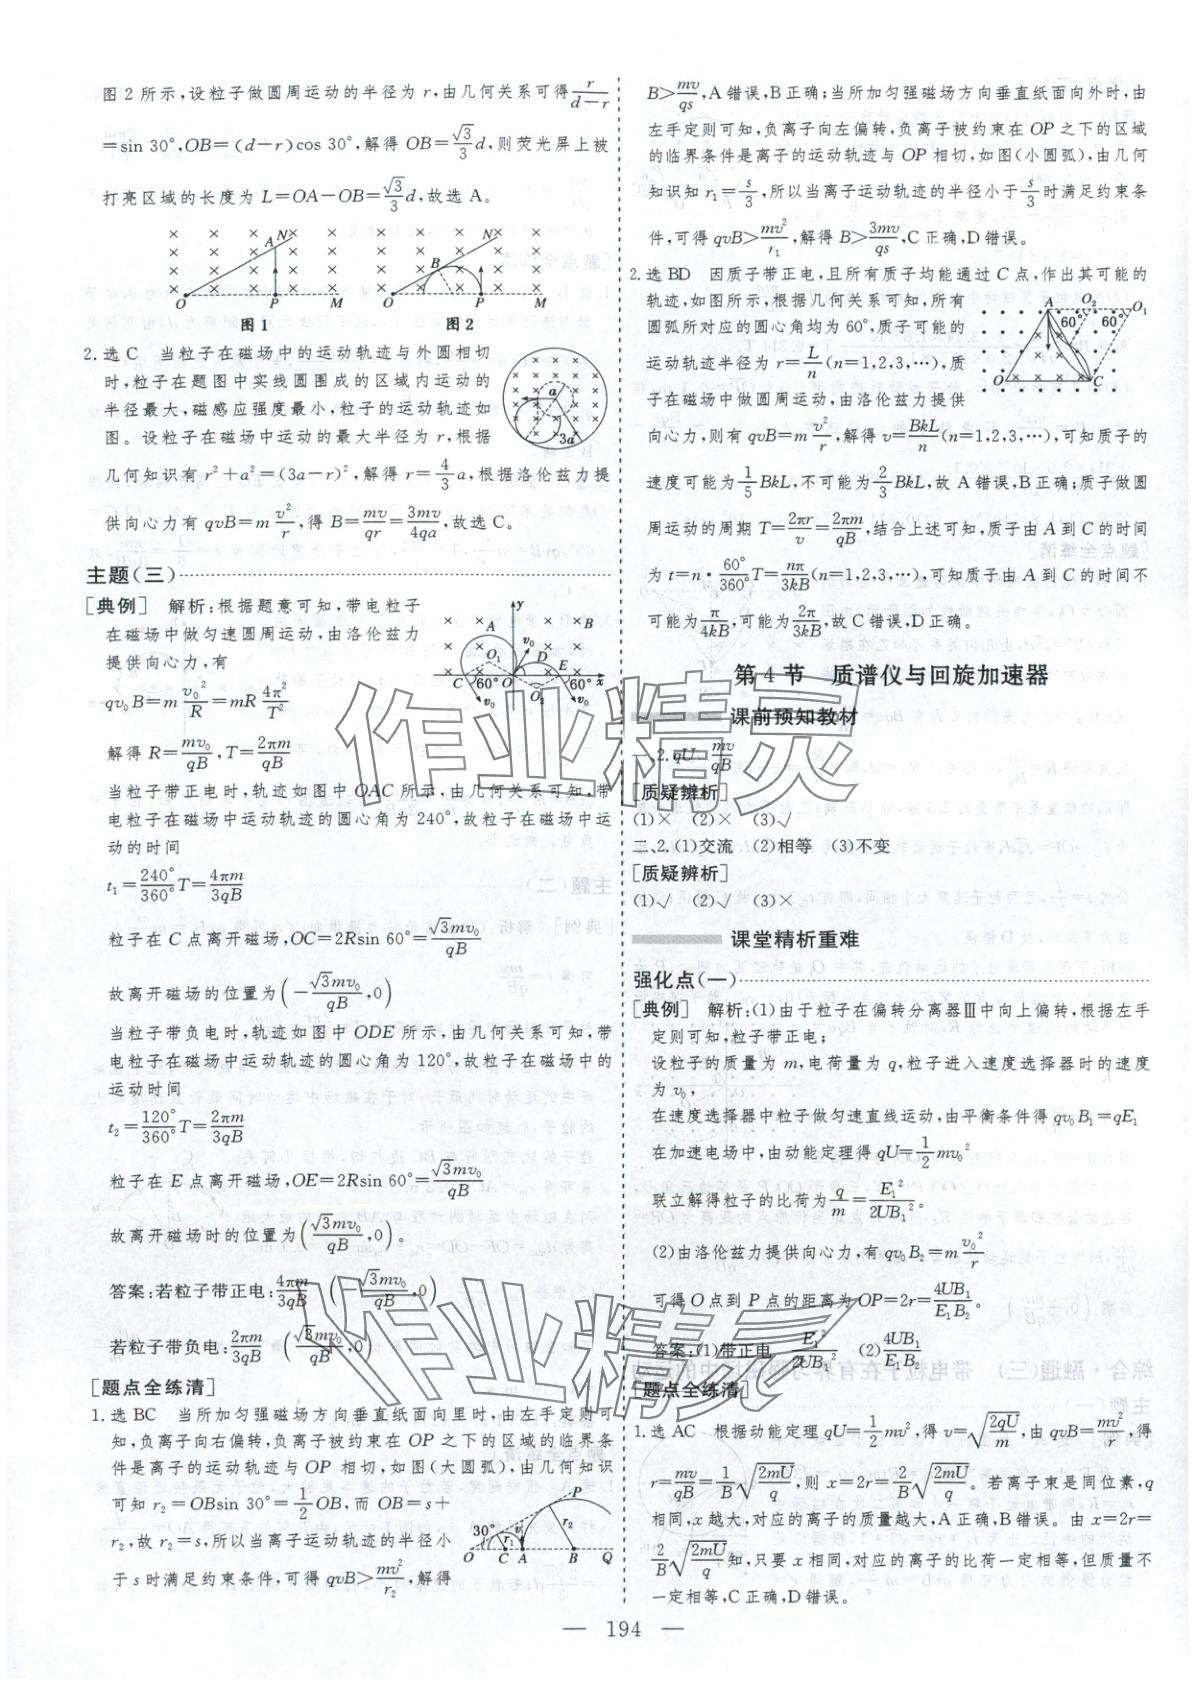 图 2 所示,设粒子做圆周运动的半径为 r,由几何关系可得 r/(d−r)
=sin 30°,OB=(d−r)cos 30°,解得 OB=(√3/3)d,则荧光屏上被
打亮区域的长度为 L=OA−OB=(√3/3)d,故选 A。
A N O P M
图 1
B N O P M
图 2
2. 选 C　当粒子在磁场中的运动轨迹与外圆相切
时,粒子在题图中实线圆围成的区域内运动的
半径最大,磁感应强度最小,粒子的运动轨迹如
图。设粒子在磁场中运动的最大半径为 r,根据
几何知识有 r²+a²=(3a−r)²,解得 r=(4/3)a,根据洛伦兹力提
供向心力有 qvB=m v²/r,得 B=mv/(qr)=3mv/(4qa),故选 C。
a 3a
主题(三)
[典例]　解析:根据题意可知,带电粒子
在磁场中做匀速圆周运动,由洛伦兹力
提供向心力,有
qv₀B=m v₀²/R=mR 4π²/T²
解得 R=mv₀/(qB),T=2πm/(qB)
y A B v₀ O₁ D E C 60° O 60° x O₂ v₀ v₀
当粒子带正电时,轨迹如图中 OAC 所示,由几何关系可知,带
电粒子在磁场中运动轨迹的圆心角为 240°,故粒子在磁场中运
动的时间
t₁=(240°/360°)T=4πm/(3qB)
粒子在 C 点离开磁场,OC=2Rsin 60°=√3mv₀/(qB)
故离开磁场的位置为(−√3mv₀/(qB),0)
当粒子带负电时,轨迹如图中 ODE 所示,由几何关系可知,带
电粒子在磁场中运动轨迹的圆心角为 120°,故粒子在磁场中的
运动时间
t₂=(120°/360°)T=2πm/(3qB)
粒子在 E 点离开磁场,OE=2Rsin 60°=√3mv₀/(qB)
故离开磁场时的位置为(√3mv₀/(qB),0)
答案:若粒子带正电:4πm/(3qB)　(−√3mv₀/(qB),0)
若粒子带负电:2πm/(3qB)　(√3mv₀/(qB),0)
[题点全练清]
1. 选 BC　当所加匀强磁场方向垂直纸面向里时,由左手定则可
知,负离子向右偏转,负离子被约束在 OP 之下的区域的临界条
件是离子的运动轨迹与 OP 相切,如图(大圆弧),由几何知识
可知 r₂=OBsin 30°=(1/2)OB,而 OB=s+
r₂,故 r₂=s,所以当离子运动轨迹的半径小
于 s 时满足约束条件,可得 qvB>mv²/s,解得
30° P v r₁ r₂ O C A B Q
B>mv/(qs),A 错误,B 正确;当所加匀强磁场方向垂直纸面向外时,由
左手定则可知,负离子向左偏转,负离子被约束在 OP 之下的区域
的临界条件是离子的运动轨迹与 OP 相切,如图(小圆弧),由几何
知识知 r₁=s/3,所以当离子运动轨迹的半径小于 s/3 时满足约束条
件,可得 qvB>mv²/r₁,解得 B>3mv/(qs),C 正确,D 错误。
2. 选 BD　因质子带正电,且所有质子均能通过 C 点,作出其可能的
轨迹,如图所示,根据几何关系可知,所有
圆弧所对应的圆心角均为 60°,质子可能的
运动轨迹半径为 r=L/n(n=1,2,3,⋯),质
子在磁场中做圆周运动,由洛伦兹力提供
A O₂ O₁ 60° 60° C
向心力,则有 qvB=m v²/r,解得 v=BkL/n(n=1,2,3,⋯),可知质子的
速度可能为 (1/5)BkL,不可能为 (2/3)BkL,故 A 错误,B 正确;质子做圆
周运动的周期 T=2πr/v=2πm/(qB),结合上述可知,质子由 A 到 C 的时间
为 t=n·(60°/360°)T=nπ/(3kB)(n=1,2,3,⋯),可知质子由 A 到 C 的时间不
可能为 π/(4kB),可能为 2π/(3kB),故 C 错误,D 正确。
第 4 节　质谱仪与回旋加速器
课前预知教材
一、2. qU　mv/(qB)
[质疑辨析]
(1)×　(2)×　(3)√
二、2. (1)交流　(2)相等　(3)不变
[质疑辨析]
(1)√　(2)√　(3)×
课堂精析重难
强化点(一)
[典例]　解析:(1)由于粒子在偏转分离器Ⅲ中向上偏转,根据左手
定则可知,粒子带正电;
设粒子的质量为 m,电荷量为 q,粒子进入速度选择器时的速度
为 v₀,
在速度选择器中粒子做匀速直线运动,由平衡条件得 qv₀B₁=qE₁
在加速电场中,由动能定理得 qU=(1/2)mv₀²
联立解得粒子的比荷为 q/m=E₁²/(2UB₁²)。
(2)由洛伦兹力提供向心力,有 qv₀B₂=m v₀²/r
可得 O 点到 P 点的距离为 OP=2r=4UB₁/(E₁B₂)。
答案:(1)带正电　E₁²/(2UB₁²)　(2)4UB₁/(E₁B₂)
[题点全练清]
1. 选 AC　根据动能定理 qU=(1/2)mv²,得 v=√(2qU/m),由 qvB=mv²/r,得
r=mv/(qB)=(1/B)√(2mU/q),则 x=2r=(2/B)√(2mU/q)。若离子束是同位素,q
相同,x 越大,对应的离子的质量越大,A 正确,B 错误。由 x=2r=
(2/B)√(2mU/q)知,只要 x 相同,对应的离子的比荷一定相等,但质量不
一定相等,C 正确,D 错误。
作业精灵
作业精灵
— 194 —